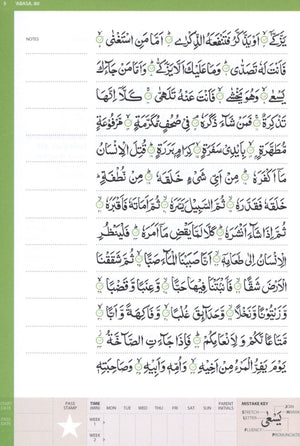 'ABASA, 80
NOTES
يَزَّكّٰىۤ ۝ اَوْ يَذَّكَّرُ فَتَنْفَعَهُ الذِّكْرٰى ۝ اَمَّا مَنِ اسْتَغْنٰى ۝
فَاَنْتَ لَهٗ تَصَدّٰى ۝ وَمَا عَلَيْكَ اَلَّا يَزَّكّٰى ۝ وَاَمَّا مَنْ جَآءَكَ
يَسْعٰى ۝ وَهُوَ يَخْشٰى ۝ فَاَنْتَ عَنْهُ تَلَهّٰى ۝ كَلَّآ اِنَّهَا
تَذْكِرَةٌ ۝ فَمَنْ شَآءَ ذَكَرَهٗ ۝ فِيْ صُحُفٍ مُّكَرَّمَةٍ ۝ مَّرْفُوْعَةٍ
مُّطَهَّرَةٍ ۝ بِاَيْدِيْ سَفَرَةٍ ۝ كِرَامٍۭ بَرَرَةٍ ۝ قُتِلَ الْاِنْسَانُ
مَآ اَكْفَرَهٗ ۝ مِنْ اَيِّ شَيْءٍ خَلَقَهٗ ۝ مِنْ نُّطْفَةٍ
خَلَقَهٗ فَقَدَّرَهٗ ۝ ثُمَّ السَّبِيْلَ يَسَّرَهٗ ۝ ثُمَّ اَمَاتَهٗ فَاَقْبَرَهٗ ۝
ثُمَّ اِذَا شَآءَ اَنْشَرَهٗ ۝ كَلَّا لَمَّا يَقْضِ مَآ اَمَرَهٗ ۝ فَلْيَنْظُرِ
الْاِنْسَانُ اِلٰى طَعَامِهٖٓ ۝ اَنَّا صَبَبْنَا الْمَآءَ صَبًّا ۝ ثُمَّ شَقَقْنَا
الْاَرْضَ شَقًّا ۝ فَاَنْۢبَتْنَا فِيْهَا حَبًّا ۝ وَّعِنَبًا وَّقَضْبًا ۝
وَّزَيْتُوْنًا وَّنَخْلًا ۝ وَّحَدَآئِقَ غُلْبًا ۝ وَّفَاكِهَةً وَّاَبًّا ۝
مَّتَاعًا لَّكُمْ وَلِاَنْعَامِكُمْ ۝ فَاِذَا جَآءَتِ الصَّآخَّةُ ۝
يَوْمَ يَفِرُّ الْمَرْءُ مِنْ اَخِيْهِ ۝ وَاُمِّهٖ وَاَبِيْهِ ۝ وَصَاحِبَتِهٖ
START DATE PASS DATE PASS STAMP TIME (MIN) MON TUE WED THU FRI SAT SUN PARENT INITIALS MISTAKE KEY
WEEK 1
WEEK 2
STRETCH LETTER FLUENCY يَسْعٰى JOIN